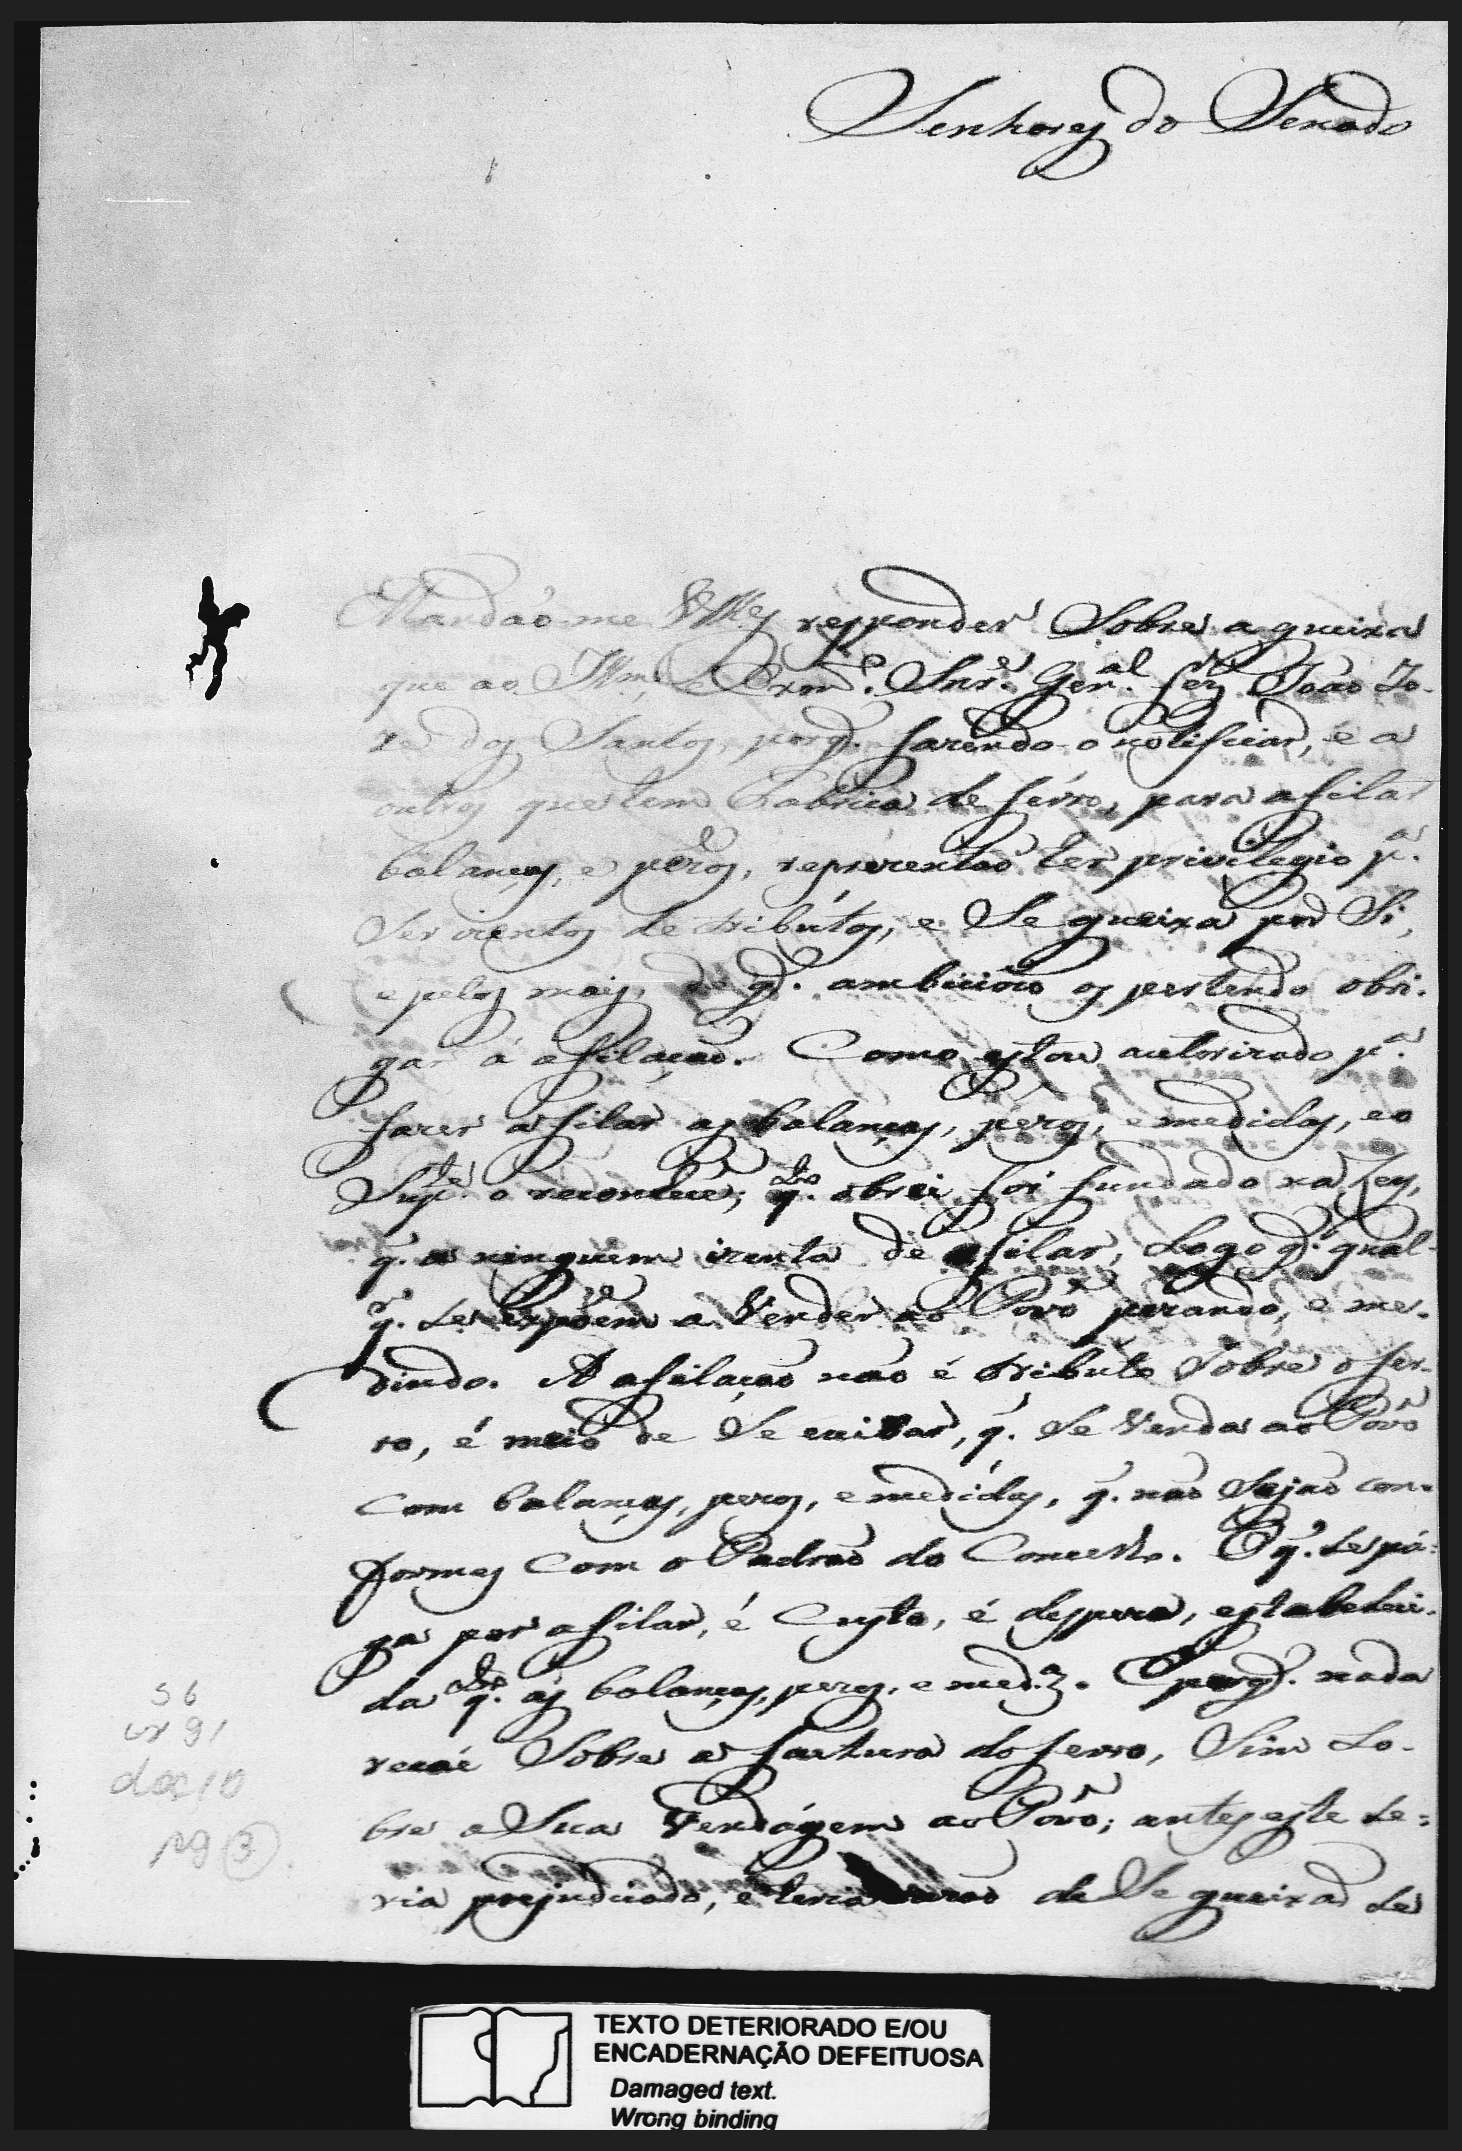 Senhores do Senado
Mandão-me VMces responder Sobre a queixa
que ao Illmo. e Exmo. Snr. Genal. fez João Jo-
zé dos Santos, porq. fazendo-o notificiar, e a
outros que tem Fabrica de férro, para afilar
balanças, e pezos, reprezentão ter privilegio pa.
Ser izentos de tributos, e Se queixa por Si,
e pelos mais, de q. ambicioso os pertendo obri-
gar á afilação. Como estou autorizado pa.
fazer afilar as balanças, pezos, e medidas, e o
Supe. o reconhece; q. obrei foi fundado na Ley,
q. a ninguem izenta de afilar, Logo q. qual-
q.r Se expõem a Vender ao Povo pezando, e me-
dindo. A afilação não é tributo Sobre o fer-
ro, é meio de Se evitar, q. Se Venda ao Povo
com balanças, pezos, e medidas, q. não Sejão con-
formes com o Padrão do Concelho. O q. Se pá-
ga por afilar, é Custo, é despeza, estabeleci-
da q. ás balanças, pezos, e med.as. E porq. nada
recáe Sobre a factura do ferro, Sim So-
bre a Sua Vendágem ao Povo; antes este Se-
ria prejudicado, e teria razão de Se queixar Se
56
cx 91
doc 10
pg 3
TEXTO DETERIORADO E/OU
ENCADERNAÇÃO DEFEITUOSA
Damaged text.
Wrong binding